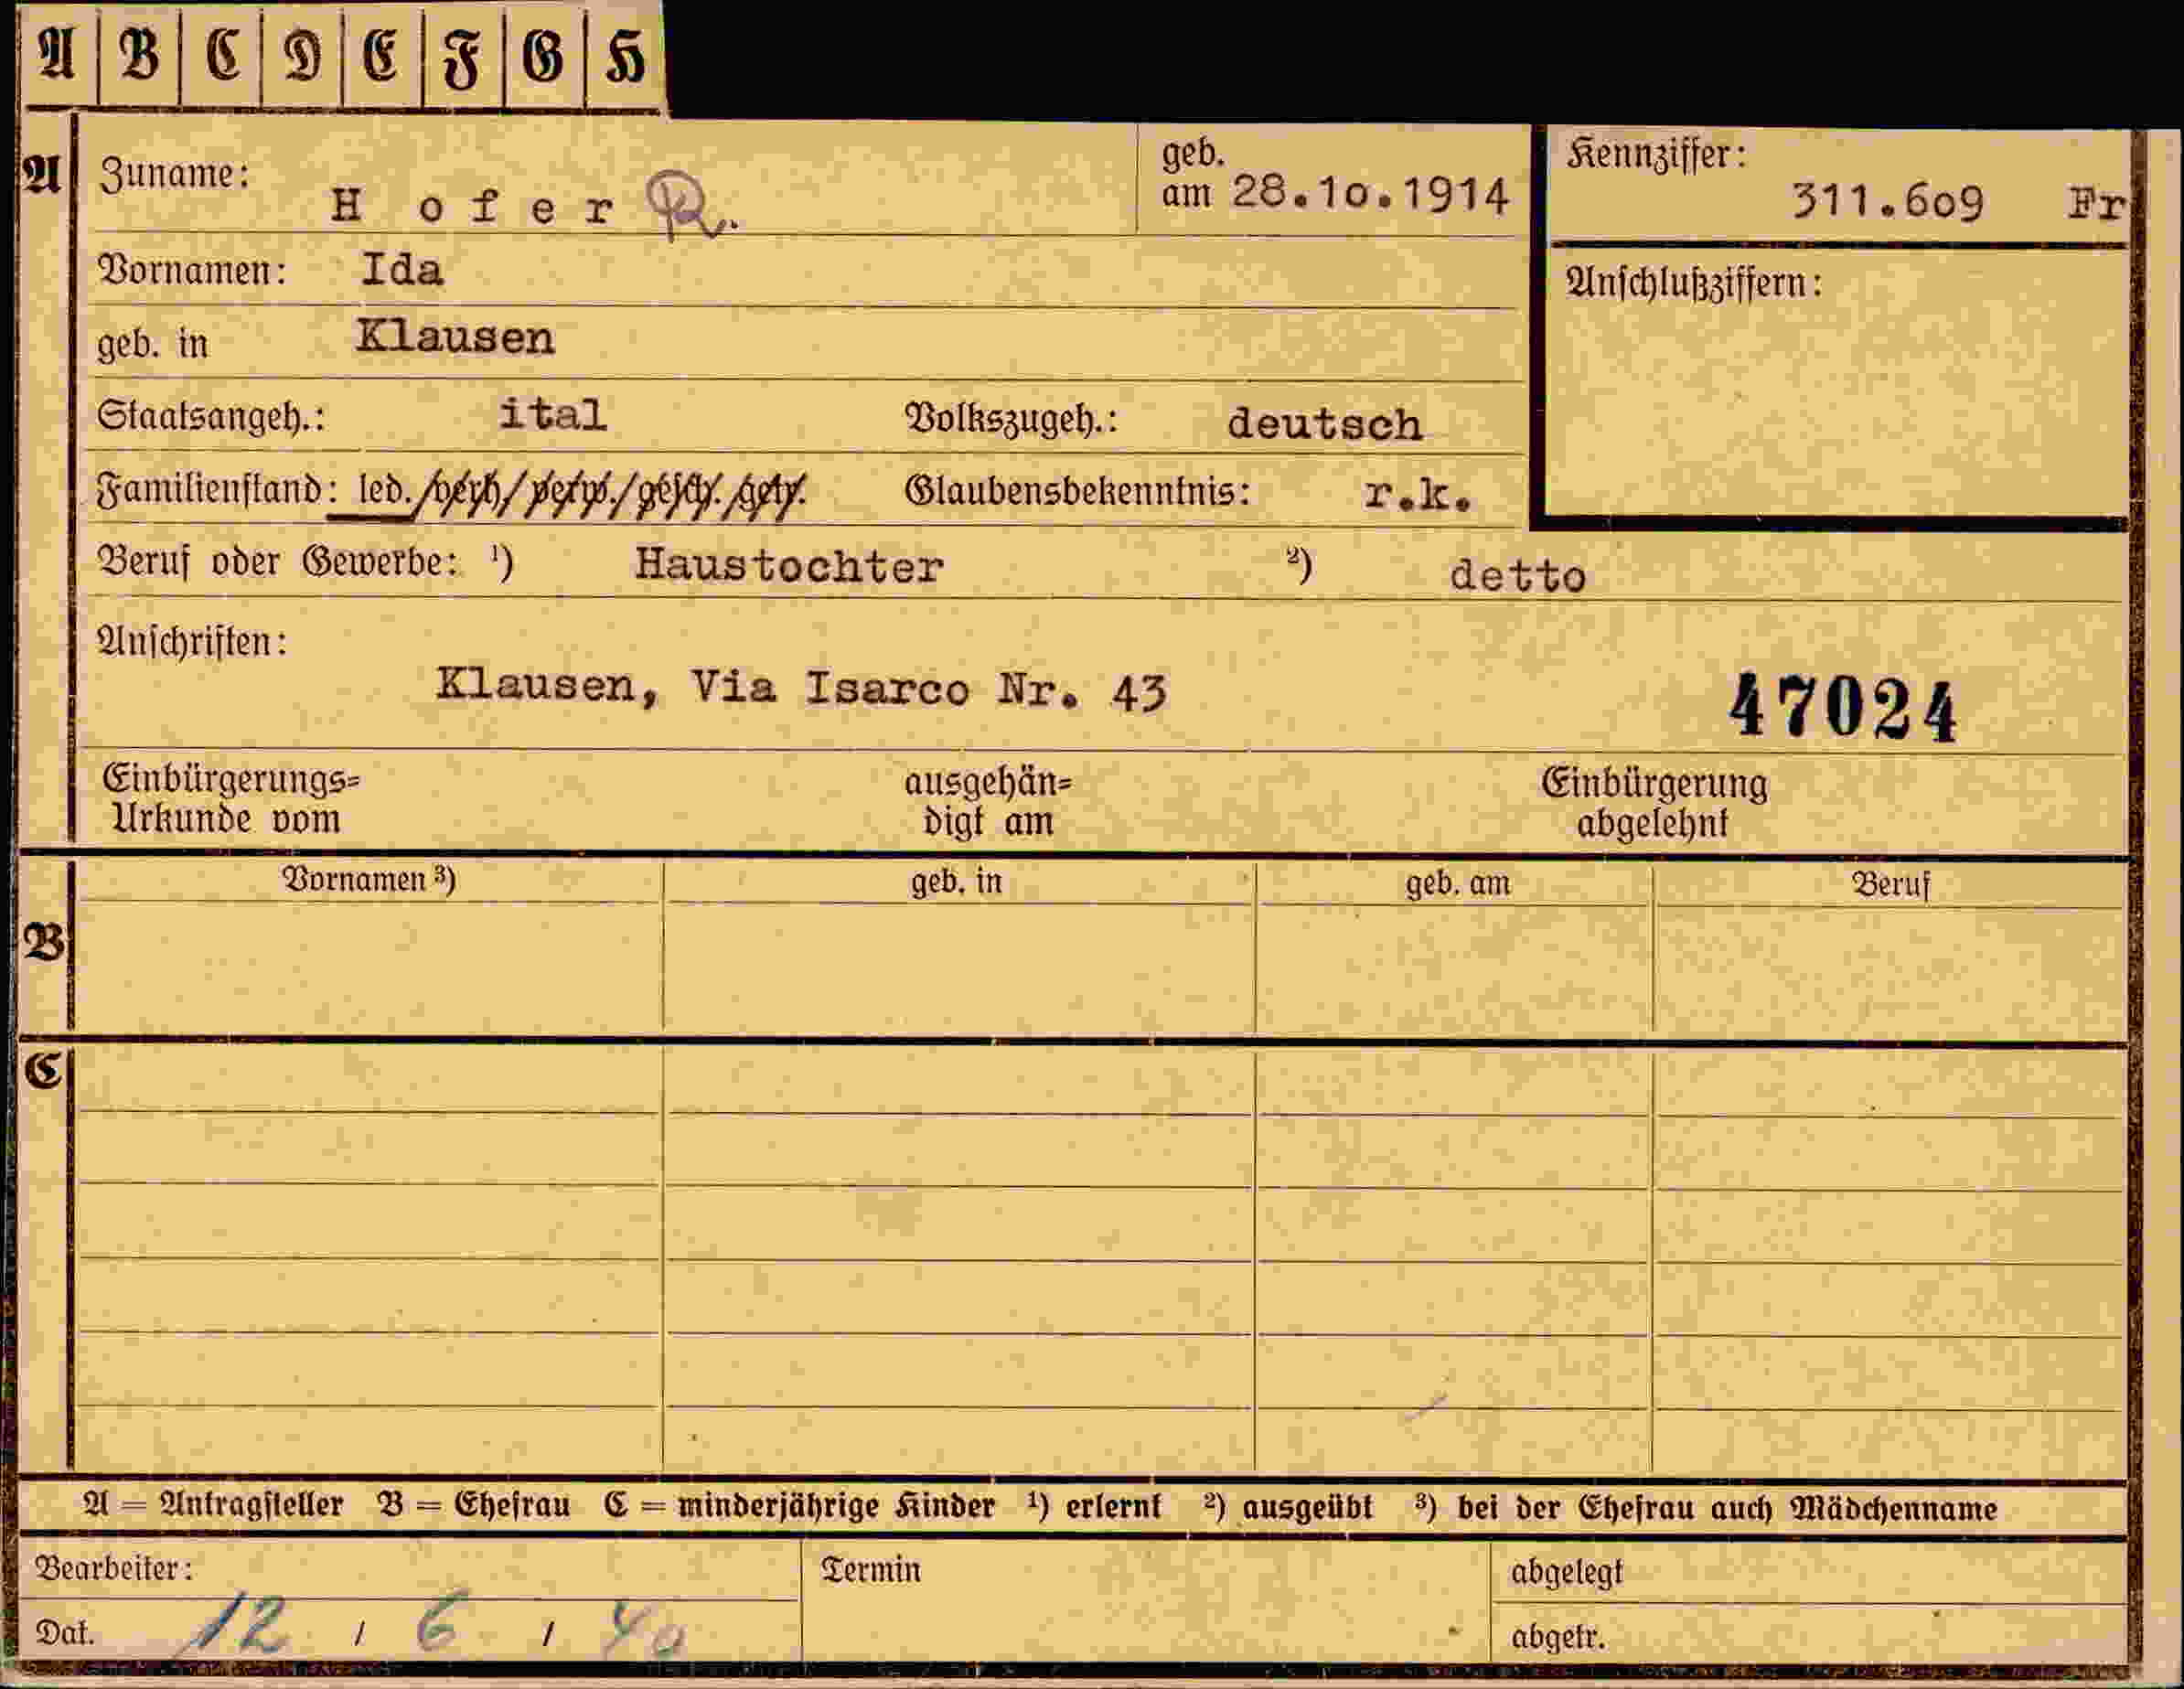 A B C D E F G H
A Zuname: Hofer R. geb. am 28.10.1914 Kennziffer: 311.609 Fr
Vornamen: Ida Anschlußziffern:
geb. in Klausen
Staatsangeh.: ital Volkszugeh.: deutsch
Familienstand: led./verh/verw./gesch./getr. Glaubensbekenntnis: r.k.
Beruf oder Gewerbe: ¹) Haustochter ²) detto
Anschriften:
Klausen, Via Isarco Nr. 43 47024
Einbürgerungs= ausgehän= Einbürgerung
Urkunde vom digt am abgelehnt
Vornamen ³) geb. in geb. am Beruf
B
C
A = Antragsteller B = Ehefrau C = minderjährige Kinder ¹) erlernt ²) ausgeübt ³) bei der Ehefrau auch Mädchenname
Bearbeiter: Termin abgelegt
Dat. 12 / 6 / 40 abgetr.